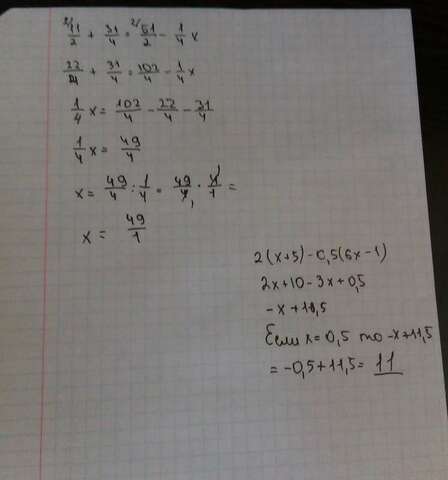 2/ 11/2 + 31/4 = 2/ 51/2 - 1/4 x
22/4 + 31/4 = 102/4 - 1/4 x
1/4 x = 102/4 - 22/4 - 31/4
1/4 x = 49/4
x = 49/4 : 1/4 = 49/4 · 4/1 =
x = 49/1
2(x+5) - 0,5(6x-1)
2x+10-3x+0,5
-x+10,5
Если x=0,5 то -x+11,5
= -0,5+11,5= 11